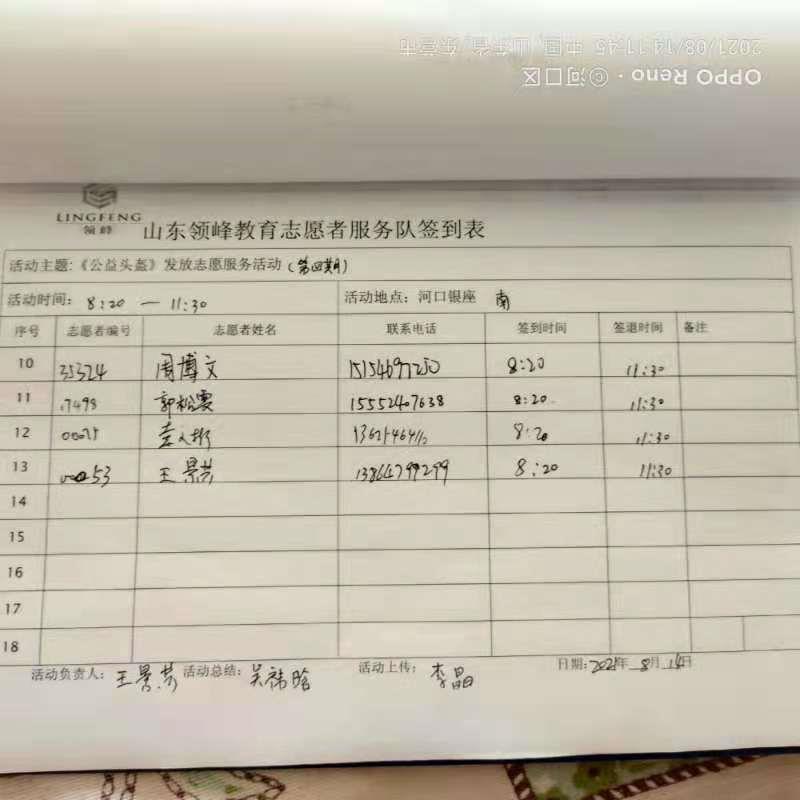 2021/08/14 11:45 中国, 山东省, 东营市
OPPO Reno · ©河口区
LINGFENG
领峰
山东领峰教育志愿者服务队签到表
活动主题:《公益头盔》发放志愿服务活动(第四期)
活动时间: 8:20 — 11:30 活动地点: 河口银座 南
序号 志愿者编号 志愿者姓名 联系电话 签到时间 签退时间 备注
10 35324 周博文 15154697250 8:20 11:30
11 17498 郭松雯 15552407638 8:20 11:30
12 8:20 11:30
13 王景芸 13864799299 8:20 11:30
14
15
16
17
18
活动负责人: 王景芸 活动总结: 吴祎晗 活动上传: 李晶 日期: 2021年 8月 14日